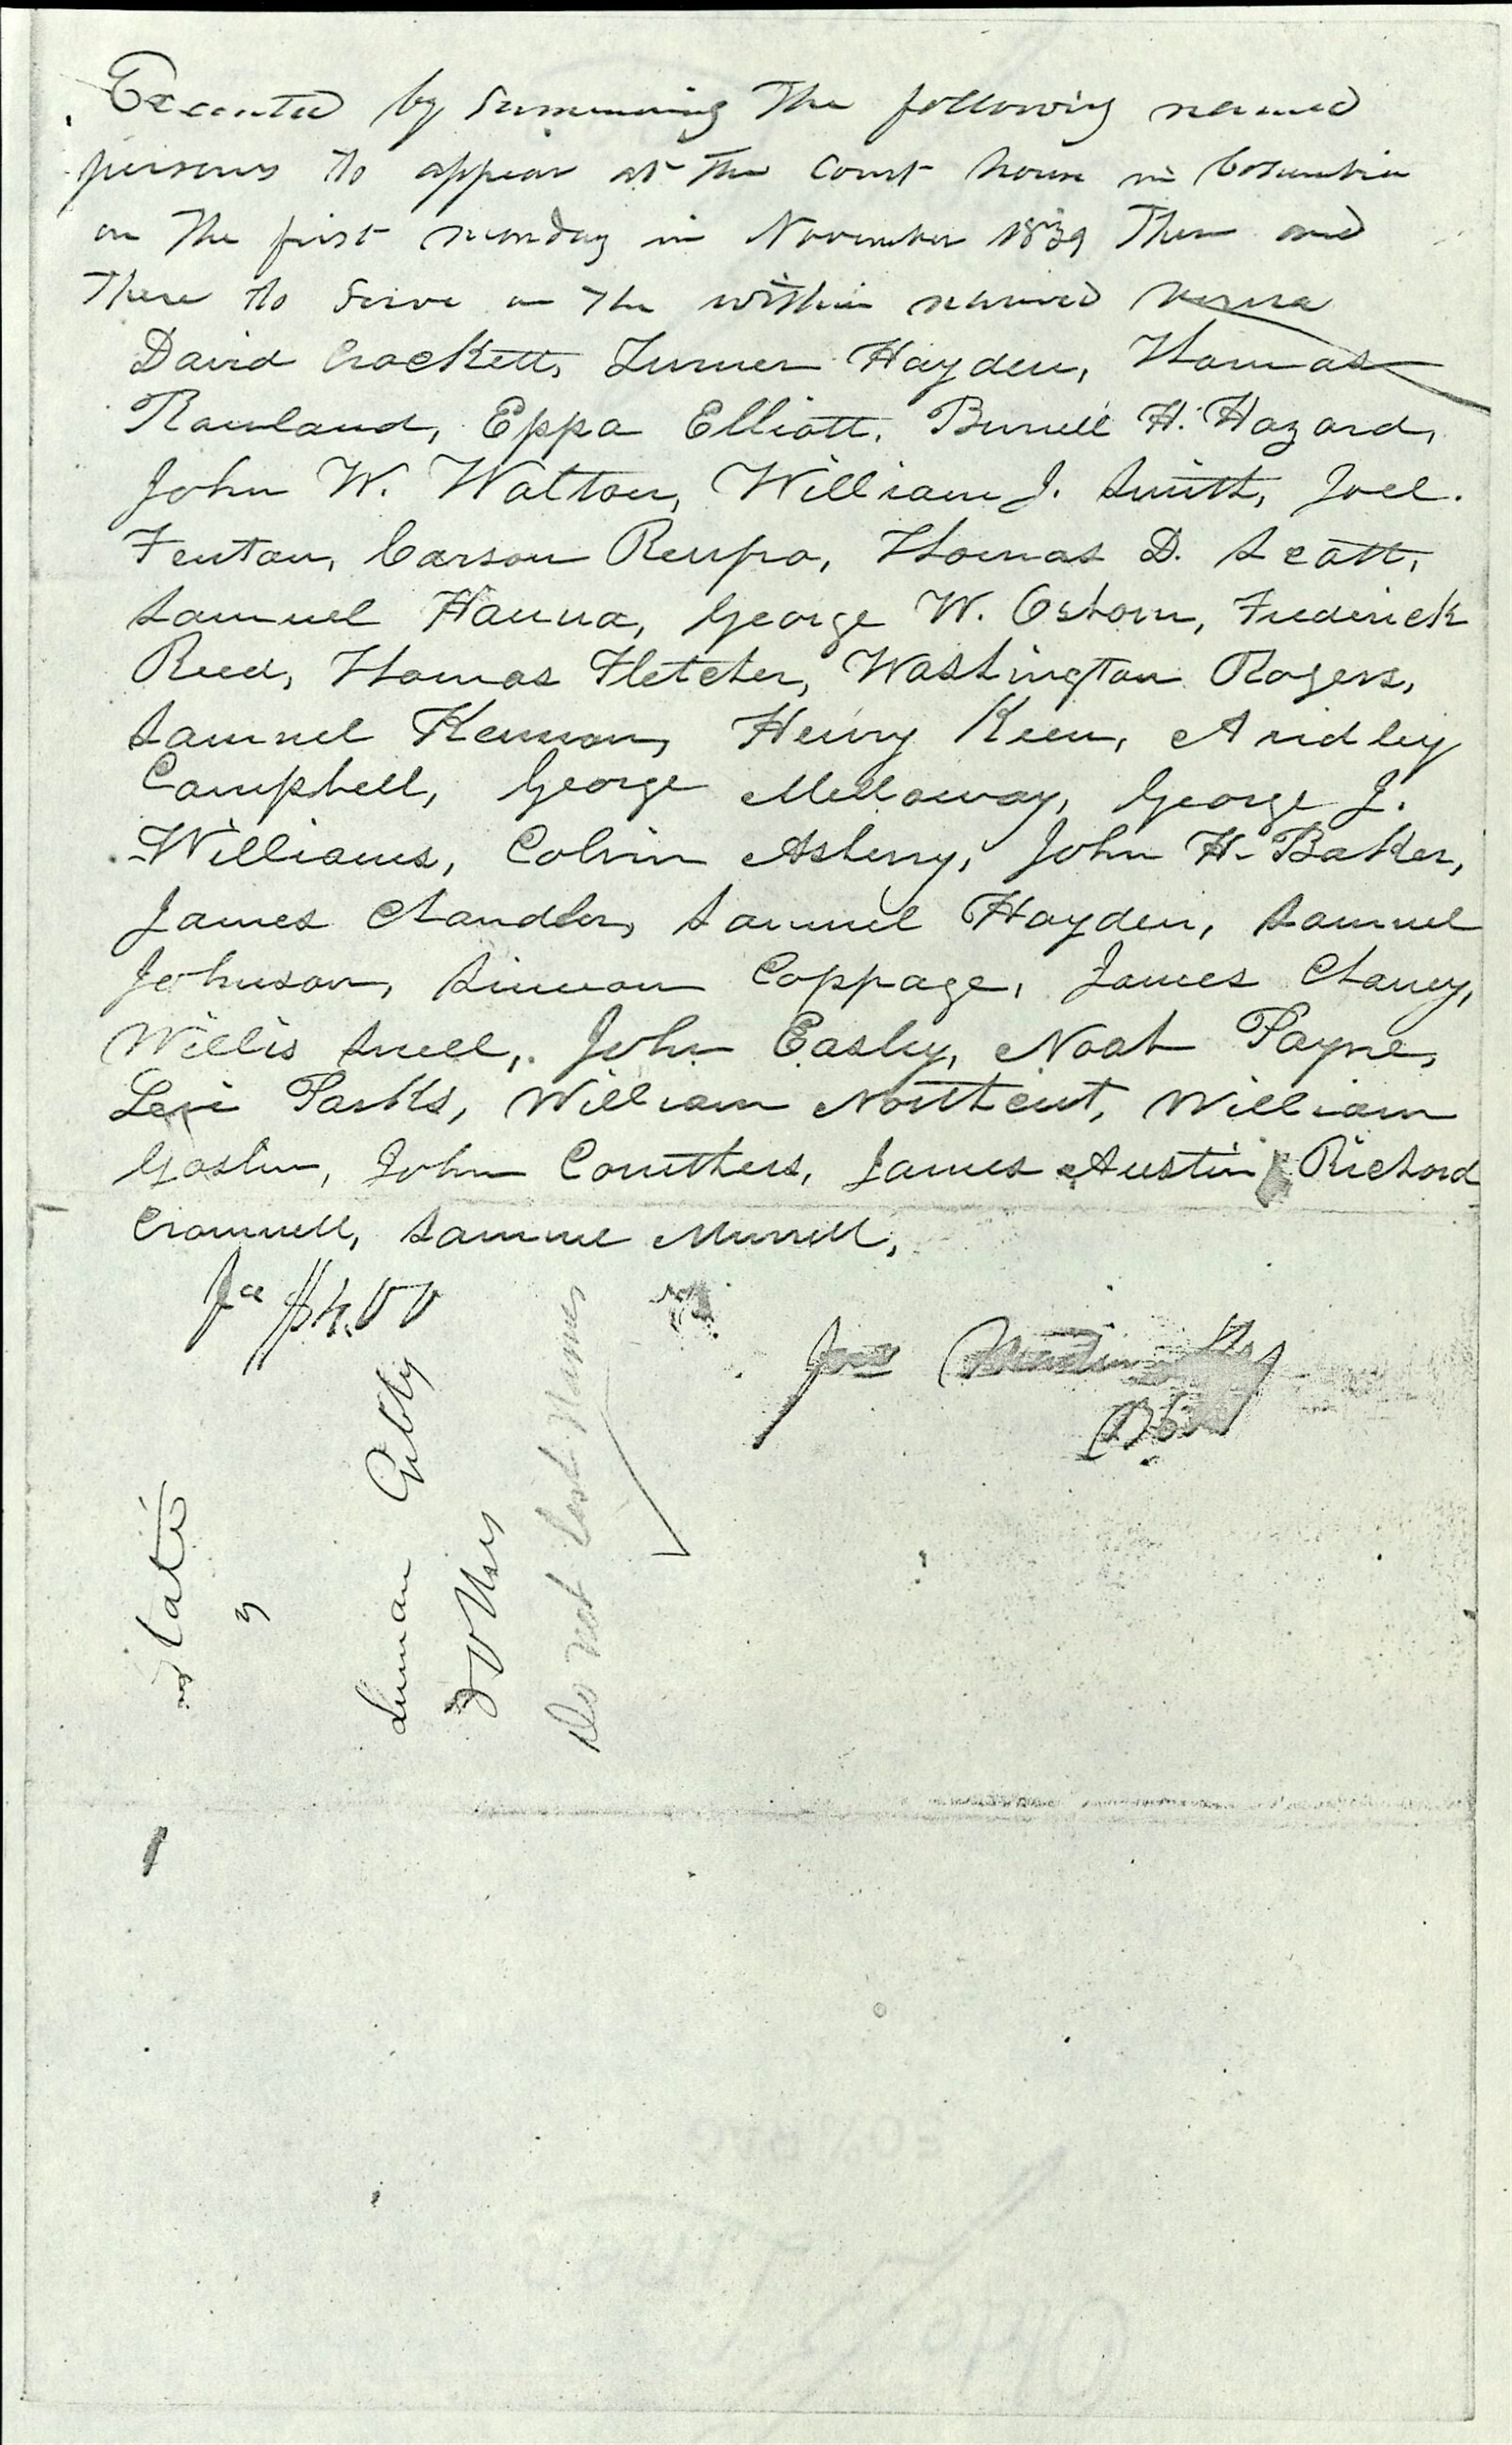 Executed by summoning the following named
persons to appear at the Court house in Columbia
on the first monday in November 1839 Then and
There to serve on the within named venire
David Crockett, Turner Hayden, Thomas
Rowland, Eppa Elliott, Burrell H. Hazard,
John W. Walton, William J. Smith, Joel
Fenton, Carson Renfro, Thomas D. Scott,
Samuel Hanna, George W. Osborn, Frederick
Reed, Thomas Fletcher, Washington Rogers,
Samuel Kennon, Henry Keen, Aridley
Campbell, George Mellaway, George J.
Williams, Colvin Asberry, John H. Baker,
James Chandler, Samuel Hayden, Samuel
Johnson, Simeon Coppage, James Chaney,
Willis Snell, John Easley, Noah Payne,
Levi Parks, William Northcut, William
Goslin, John Coruthers, James Austin, Richard
Cromwell, Samuel Murrell,
Fee $4.00
State
Luman Gibby
& Others
Do not list Names